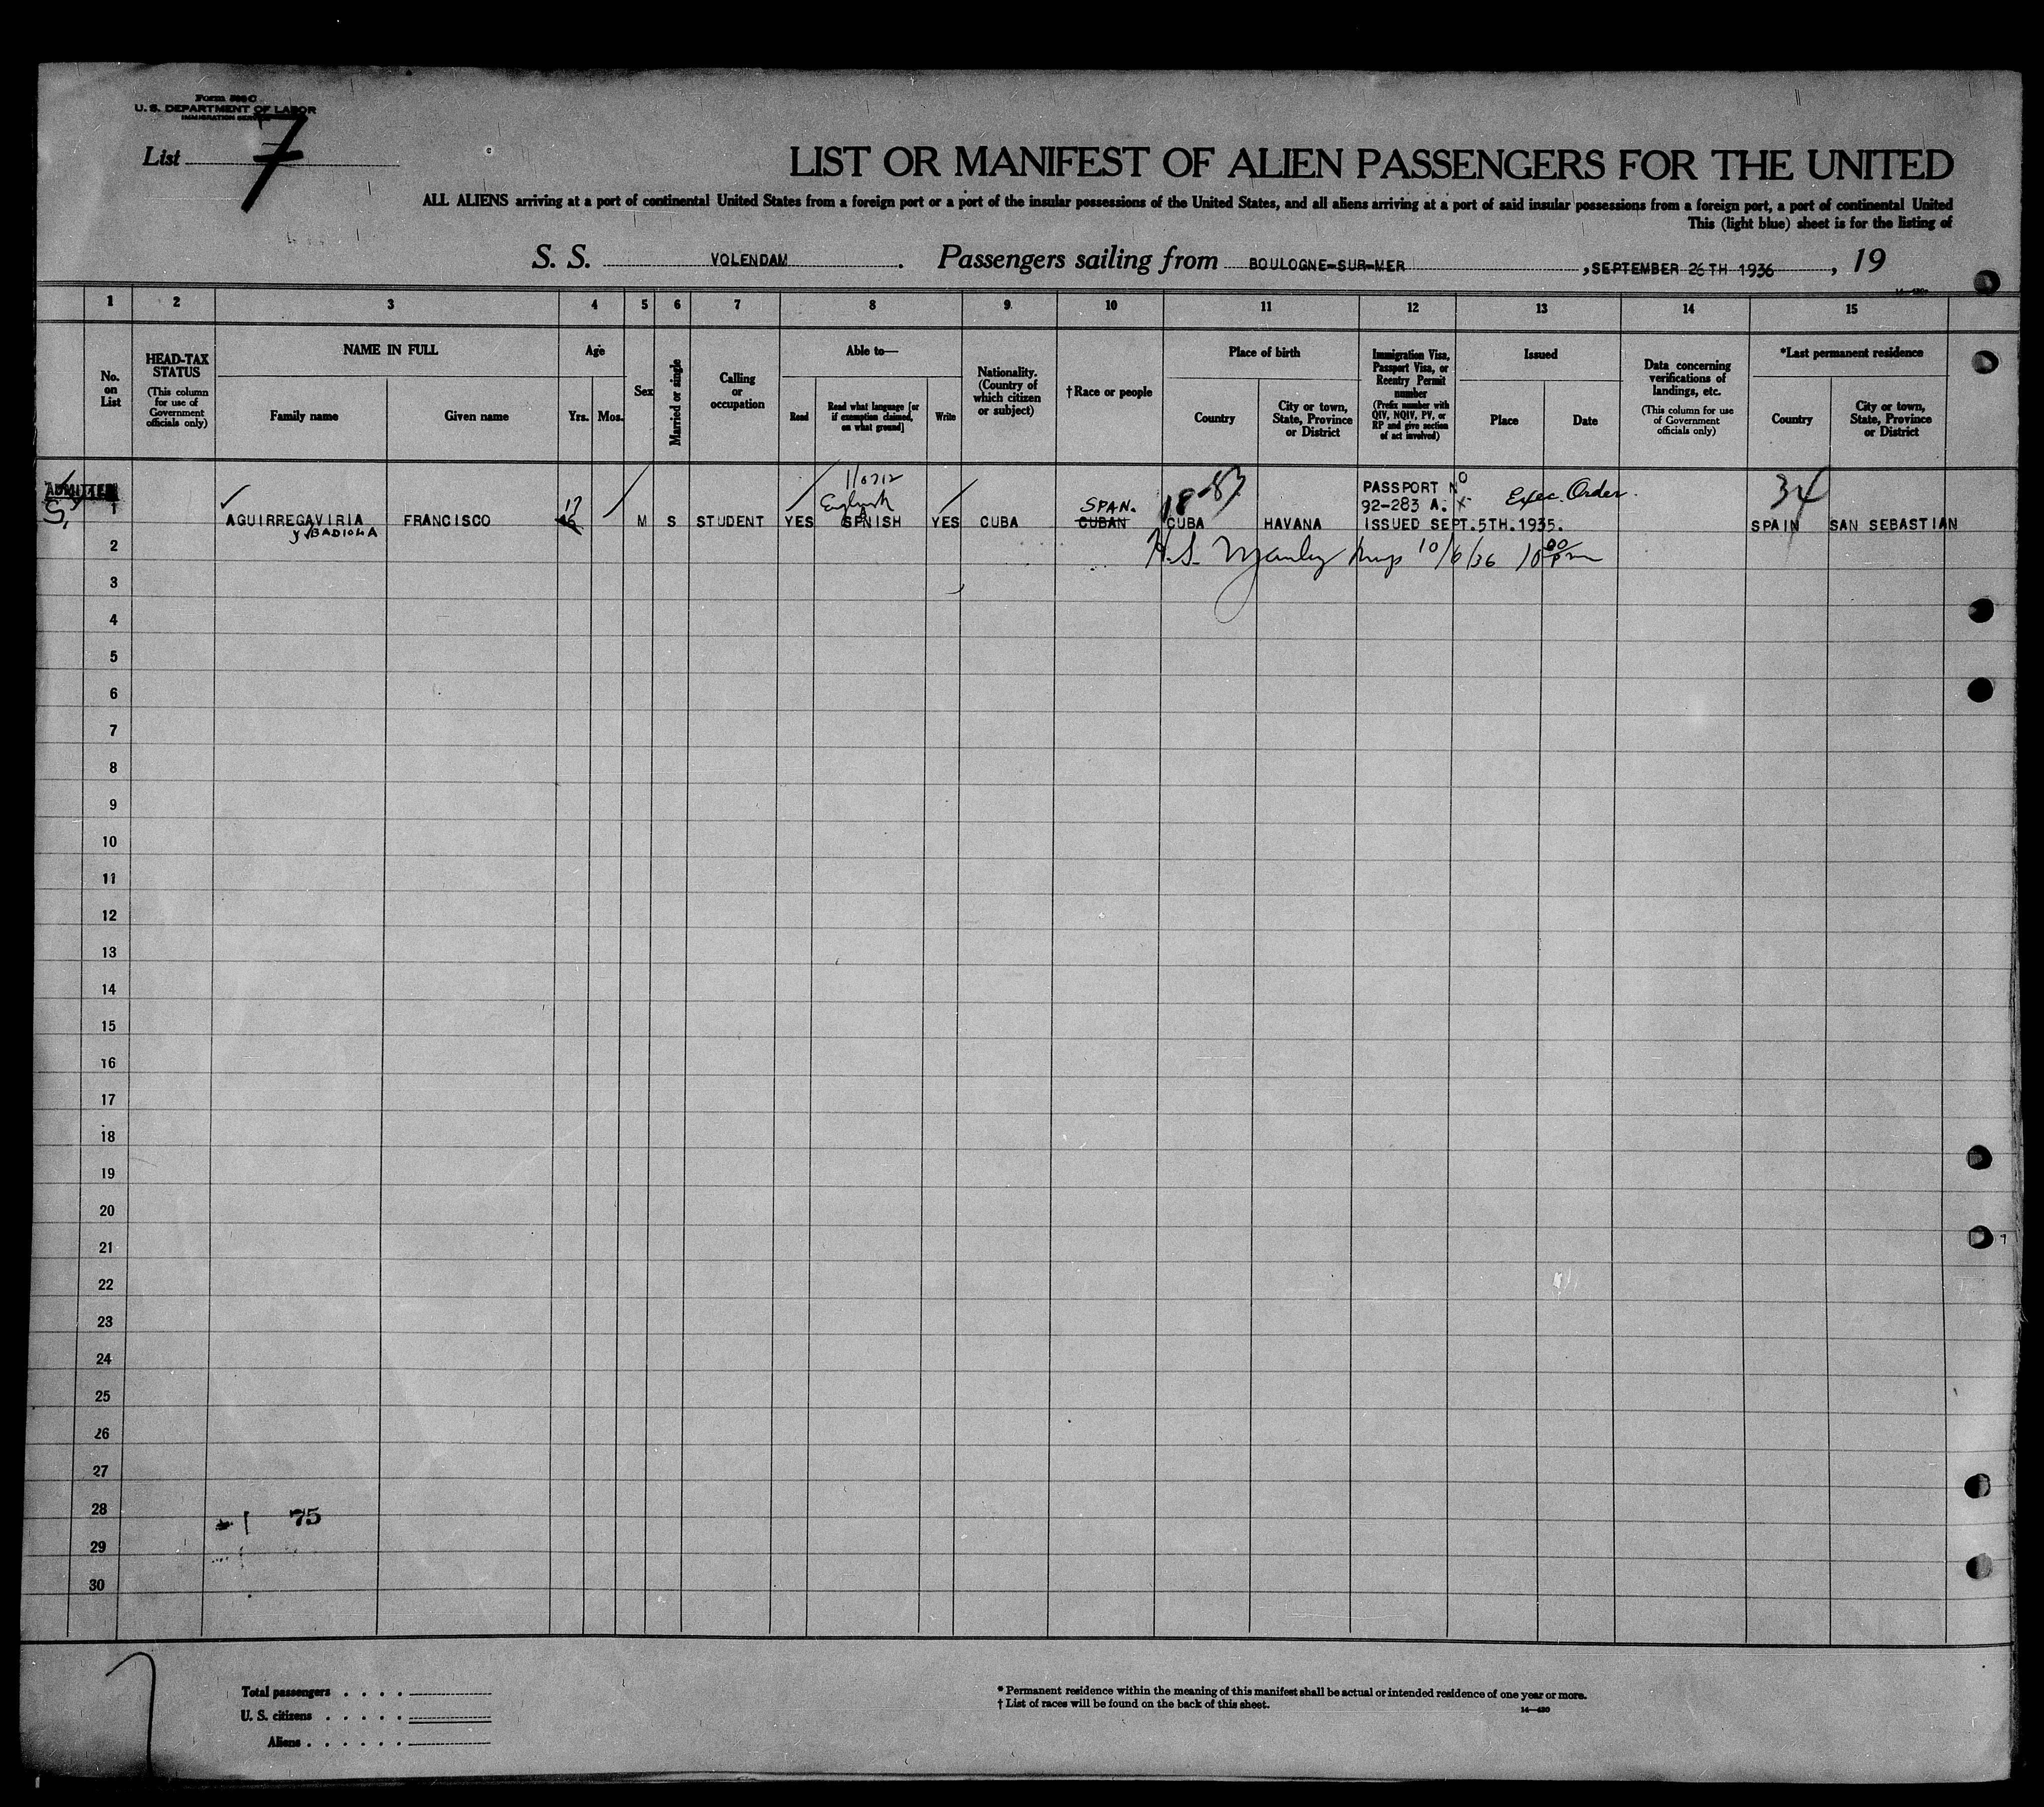 U. S. DEPARTMENT OF LABOR
IMMIGRATION SERVICE
List 7
LIST OR MANIFEST OF ALIEN PASSENGERS FOR THE UNITED
ALL ALIENS arriving at a port of continental United States from a foreign port or a port of the insular possessions of the United States, and all aliens arriving at a port of said insular possessions from a foreign port, a port of continental United
This (light blue) sheet is for the listing of
S. S. VOLENDAM. Passengers sailing from BOULOGNE-SUR-MER, SEPTEMBER 26TH 1936, 19
1 2 3 4 5 6 7 8 9 10 11 12 13 14 15
No. on List
HEAD-TAX STATUS
(This column for use of Government officials only)
NAME IN FULL
Family name
Given name
Age
Yrs. Mos.
Sex
Married or single
Calling or occupation
Able to—
Read
Read what language [or if exemption claimed, on what ground]
Write
Nationality. (Country of which citizen or subject)
†Race or people
Place of birth
Country
City or town, State, Province or District
Immigration Visa, Passport Visa, or Reentry Permit number
(Prefix number with QIV, NQIV, PV, or RP and give section of act involved)
Issued
Place
Date
Data concerning verifications of landings, etc.
(This column for use of Government officials only)
*Last permanent residence
Country
City or town, State, Province or District
ADMITTED
110712
English
17
SPAN.
18-87
PASSPORT Nº
92-283 A.
Exec. Order.
34
1 AGUIRREGAVIRIA FRANCISCO M S STUDENT YES SPNISH YES CUBA CUBAN CUBA HAVANA ISSUED SEPT.5TH.1935. SPAIN SAN SEBASTIAN
y BADIOLA
10/6/36 10 00 pm
2
3
4
5
6
7
8
9
10
11
12
13
14
15
16
17
18
19
20
21
22
23
24
25
26
27
28
75
29
30
Total passengers . . . .
U. S. citizens . . . . .
Aliens . . . . . .
* Permanent residence within the meaning of this manifest shall be actual or intended residence of one year or more.
† List of races will be found on the back of this sheet.
14—430